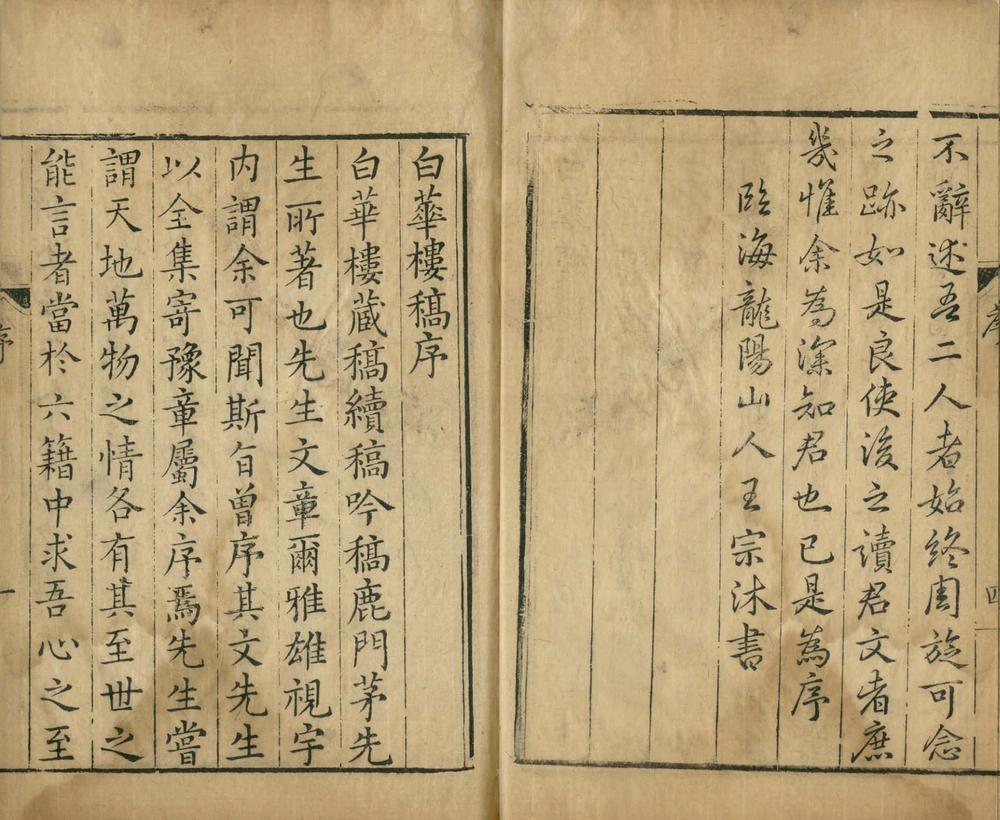 不辭述吾二人者始終周旋可念
之跡如是良使後之讀君文者庶
幾惟余為深知君也已是為序
臨海龍陽山人王宗沐書
序
四
白華樓稿序
白華樓藏稿續稿吟稿鹿門茅先
生所著也先生文章爾雅雄視宇
内謂余可聞斯旨曾序其文先生
以全集寄豫章屬余序焉先生嘗
謂天地萬物之情各有其至世之
能言者當於六籍中求吾心之至
序
一